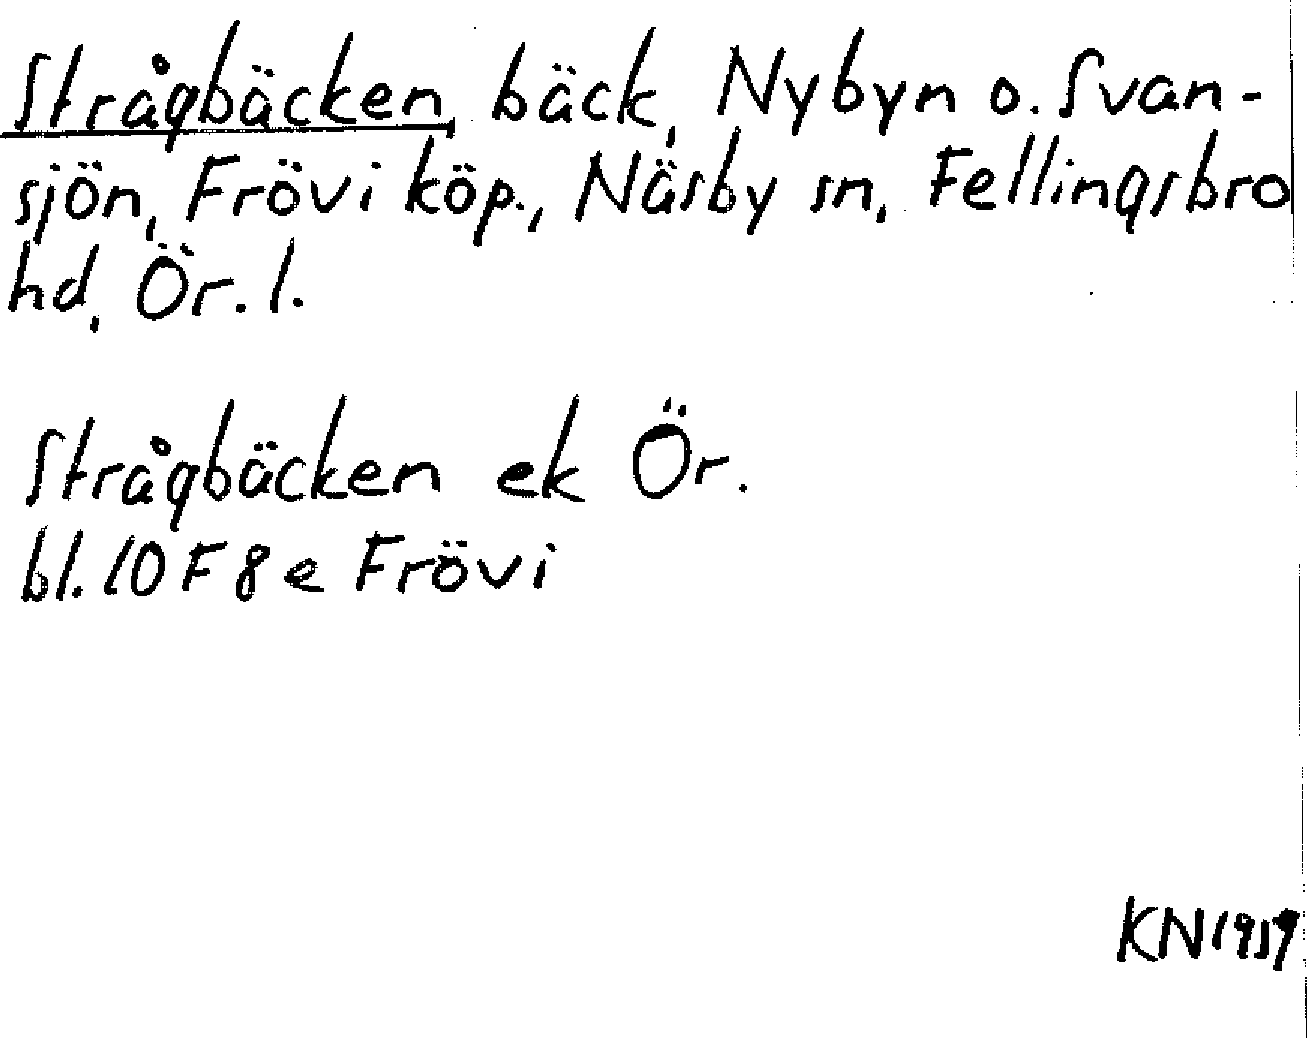 Strågbäcken, bäck, Nybyn o. Svan-
sjön, Frövi köp., Näsby sn, Fellingsbro
hd, Ör. l.
Strågbäcken ek Ör.
bl. 10 F 8 e Frövi
KN